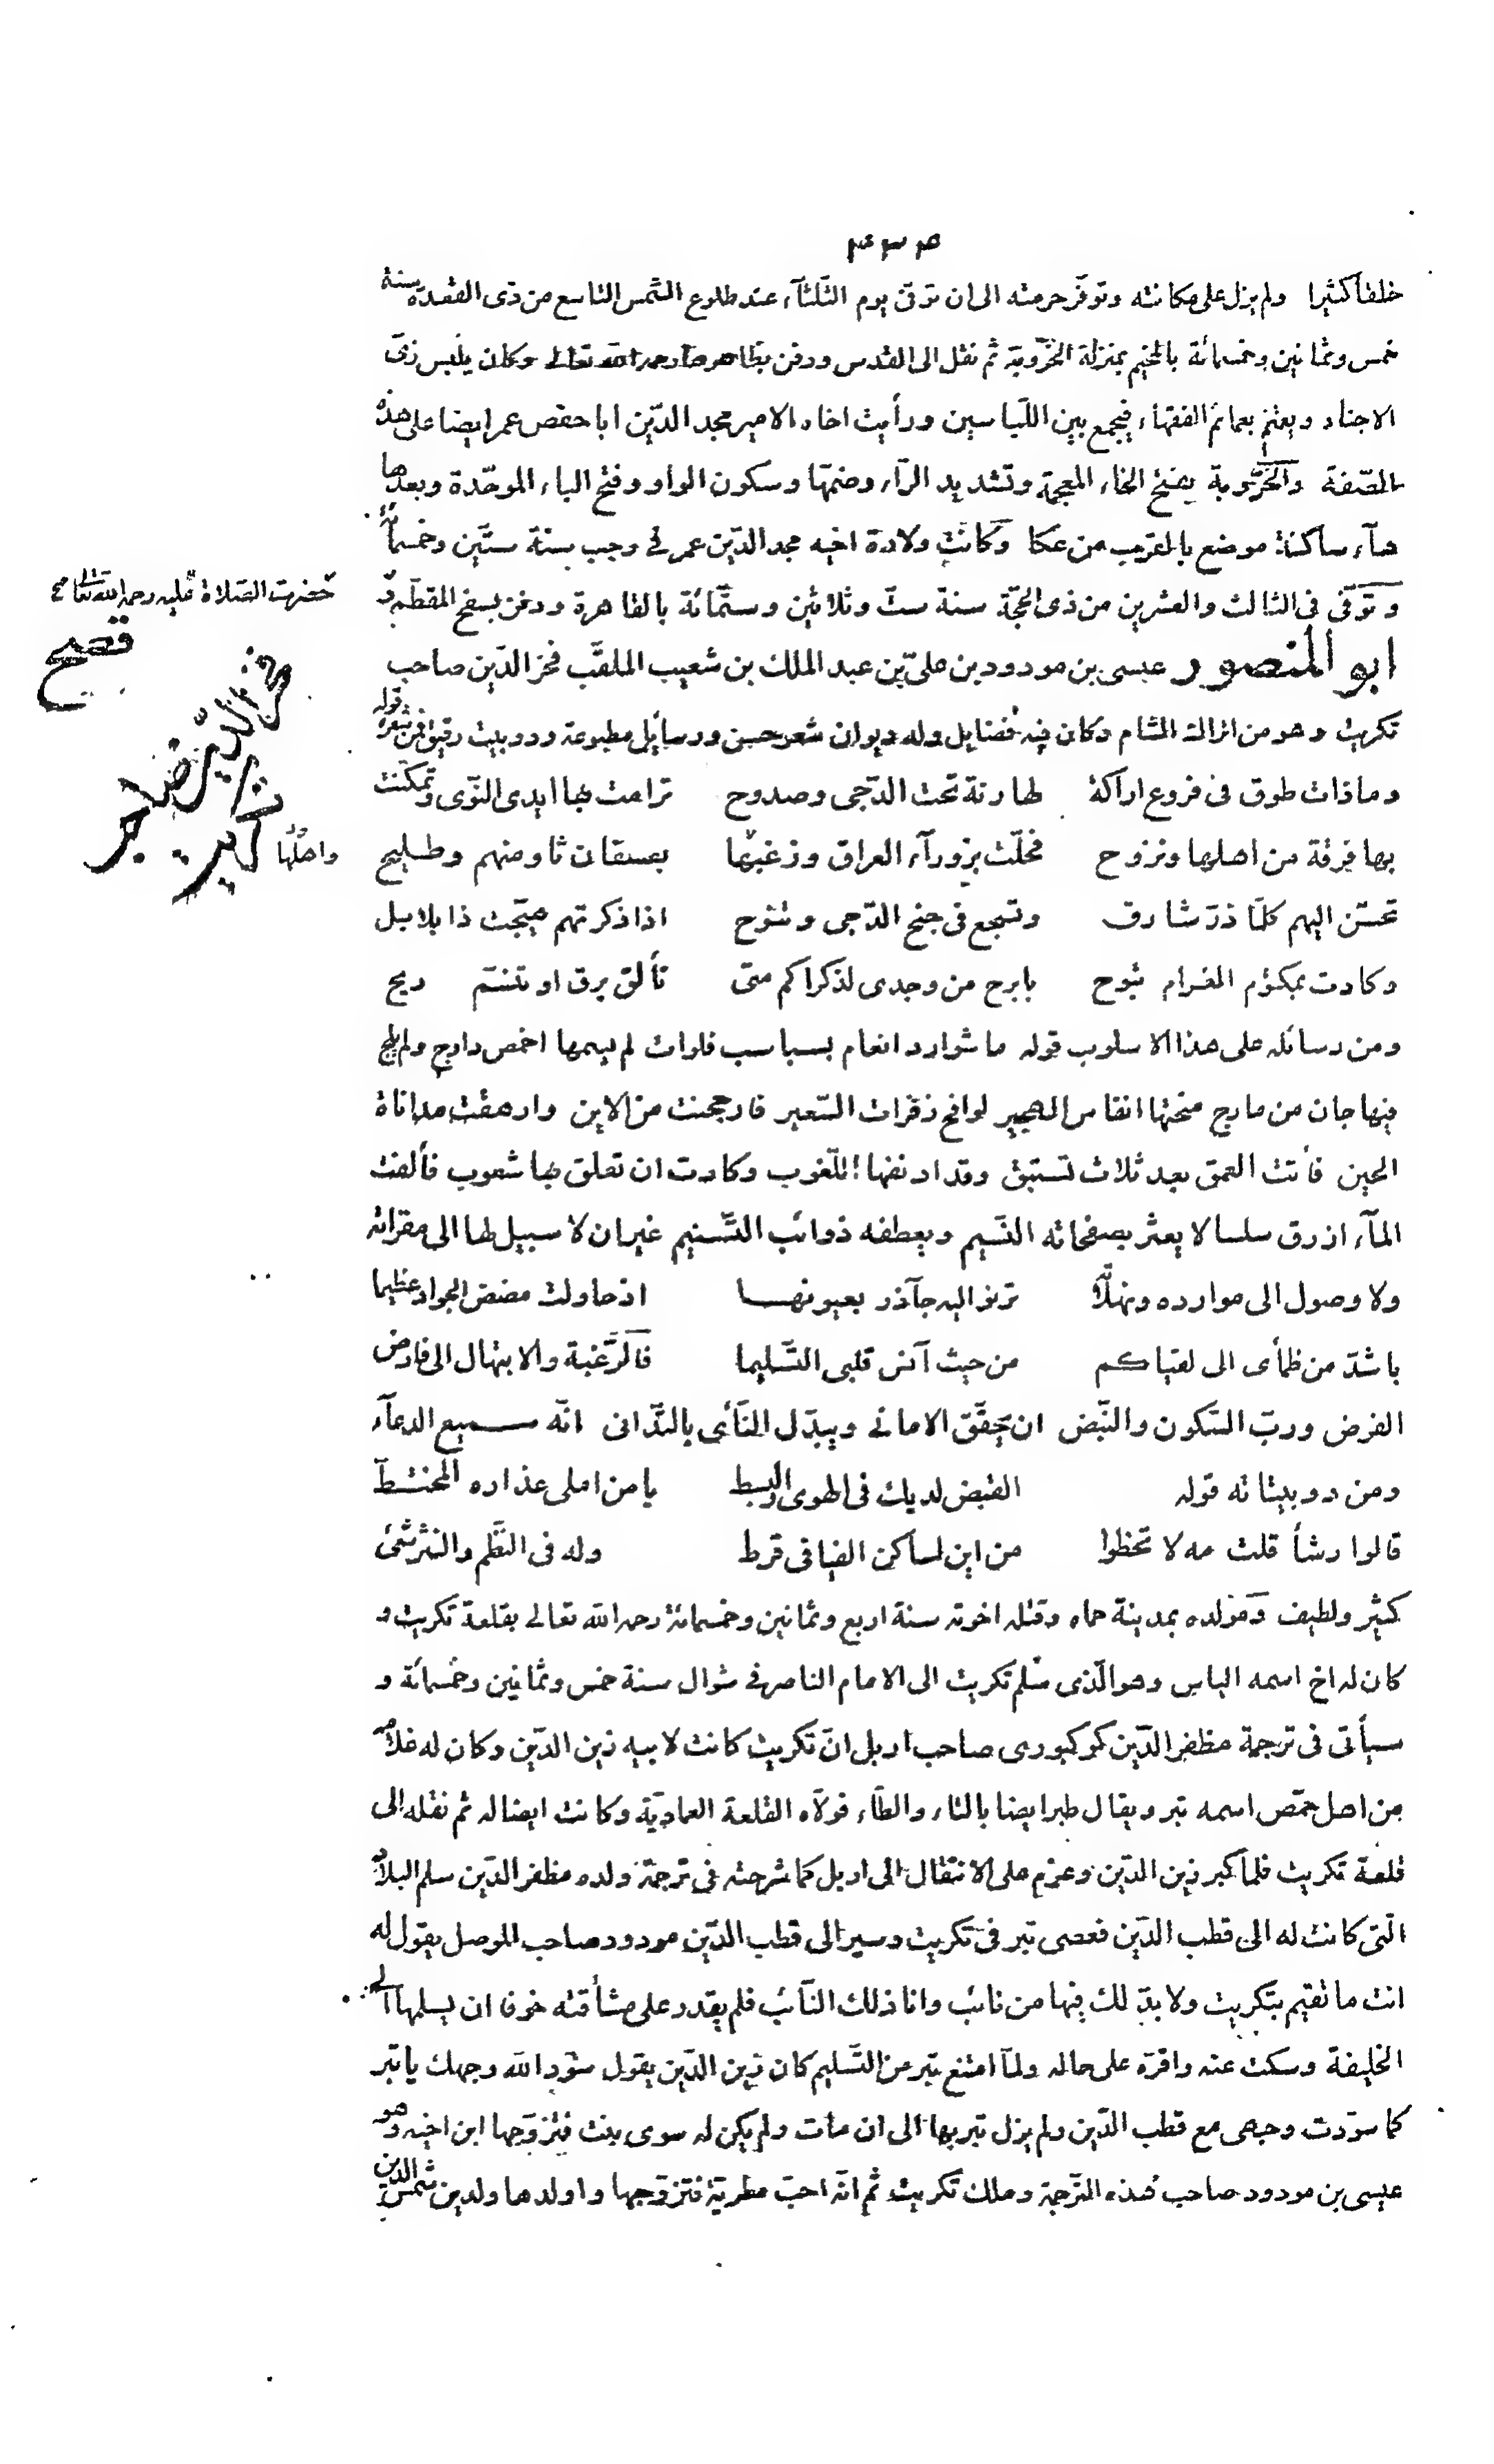 ٤٣٥
خلقا كثيرا ولم يزل على مكانته وتوفر حرمته الى ان توفى يوم الثلثآء عند طلوع الشمس التاسع من ذى القعدة سنة
خمس وثمانين وخمسمائة بالمخيم بمنزلة الخرّوبة ثم نقل الى القدس ودفن بظاهرها رحمه الله تعالى وكان يلبس زىّ
الاجناد ويعتم بعمائم الفقهاء فيجمع بين اللباسين ورأيت اخاه الامير مجد الدّين ابا حفص عمر ايضا على هذه
الصّفة والخرّوبة بفتح الخاء المعجمة وتشديد الرّاء وضمّها وسكون الواو وفتح الباء الموحّدة وبعدها
هآء ساكنة موضع بالقرب من عكا وكانت ولادة اخيه مجد الدّين عمر فى رجب سنة ستّين وخمسمائة
وتوفّى فى الثالث والعشرين من ذى الحجّة سنة ستّ وثلاثين وستّمائة بالقاهرة ودفن بسفح المقطّم و
حضرت الصّلاة عليه رحمه الله تعالى صح
ابو المنصور عيسى بن مودود بن علىّ بن عبد الملك بن شعيب الملقّب فخر الدّين صاحب
فخر الدّين صاحب
تكريت
تكريت وهو من اتراك الشام وكان فيه فضايل وله ديوان شعر حسن ورسايل مطبوعة ودوبيت رقيق فمن شعره قوله
وما ذات طوق فى فروع اراكة لها رنة تحت الدّجى وصدوح ترامت بها ايدى النّوى وتمكّنت
بها فرقة من اهلها ونزوح فحلّت بزورآء العراق وزغبها بعسفان ثاو منهم وطليح
واهلها
تحنّ اليهم كلّما ذرّ شارق وتسجع فى جنح الدّجى وتنوح اذا ذكرتهم هيّجت ذا بلابل
وكادت بمكتوم الغرام تبوح بابرح من وجدى لذكراكم متى تألق برق او تنسّم ريح
ومن رسائله على هذا الاسلوب قوله ما شوارد انعام بسباسب فلوات لم يسمها اخمص دارج ولم يلج
فيها جان من مارج منحتها انفاس الهجير لوافح زفرات السّعير فارجحنت من الاين وارهقت مداناة
الحين فأتت العمق بعد ثلاث تستبق وقد ادنفها اللّغوب وكادت ان تعلق بها شعوب فألفت
المآء ازرق سلسا لا يعثر بصفحاته النّسيم ويعطفه ذوائب التّسنيم غير ان لا سبيل لها الى مقراته
ولا وصول الى موارده ونهلاته ترنو اليه جآذر بعيونها اذ حاولت مضض الجواد عظيما
باشدّ من ظمأى الى لقياكم من حيث آنس قلبى التّسليما فالرّغبة والابتهال الى فارض
الفرض وربّ السّكون والنّبض ان يحقّق الامانى ويبدّل النّأى بالتّدانى انّه سميع الدعآء
ومن دوبيتاته قوله القبض لديك فى الهوى والبسط يا من املى عذاره المختطّ
قالوا رشأ قلت مه لا تخطوا من اين لساكن الفيافى قرط وله فى النّظم والنثر شئ
كثير ولطيف ومولده بمدينة حماه وقتله اخوته سنة اربع وثمانين وخمسمائة رحمه الله تعالى بقلعة تكريت و
كان له اخ اسمه الياس وهو الّذى سلّم تكريت الى الامام الناصر فى شوال سنة خمس وثمانين وخمسمائة و
سيأتى فى ترجمة مظفر الدّين كوكبورى صاحب اربل انّ تكريت كانت لابيه زين الدّين وكان له غلام
من اهل حمص اسمه تبر ويقال طبر ايضا بالتاء والطاء فولّاه القلعة العماديّة وكانت ايضا له ثم نقله الى
قلعة تكريت فلما كبر زين الدّين وعزم على الانتقال الى اربل كما شرحته فى ترجمة ولده مظفر الدّين سلم البلاد
الّتى كانت له الى قطب الدّين فعصى تبر فى تكريت وسير الى قطب الدّين مودود صاحب الموصل يقول له
انت ما تقيم بتكريت ولا بدّ لك فيها من نائب وانا ذلك النّائب فلم يقدر على مشاقته خوفا ان يسلمها الى
الخليفة وسكت عنه واقرّه على حاله ولمّا امتنع تبر من التّسليم كان زين الدّين يقول سوّد الله وجهك يا تبر
كما سوّدت وجهى مع قطب الدّين ولم يزل تبر بها الى ان مات ولم يكن له سوى بنت فتزوّجها ابن اخيه وهو
عيسى بن مودود صاحب هذه التّرجمة وملك تكريت ثم انّه احبّ مطربة فتزوّجها واولدها ولدين شمس الدين